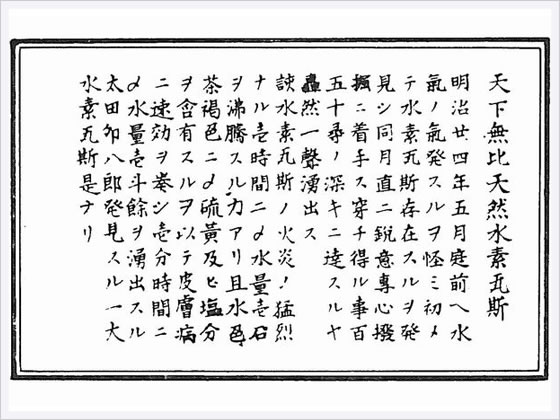 天下無比天然水素瓦斯
明治廿四年五月庭前ヘ水
氣ノ氣發スルヲ怪ミ初メ
テ水素瓦斯存在スルヲ發
見シ同月直ニ鋭意專心撥
掘ニ着手ス穿チ得ル事百
五十尋ノ深キニ達スルヤ
轟然一聲湧出ス
該水素瓦斯ノ火炎ノ猛烈
ナル壱時間ニ〆水量壱石
ヲ沸騰スル力アリ且水色
茶褐色ニ〆硫黄及ヒ塩分
ヲ含有スルヲ以テ皮膚病
ニ速効ヲ奏シ壱分時間ニ
〆水量壱斗餘ヲ湧出スル
太田卯八郎発見スル一大
水素瓦斯是ナリ